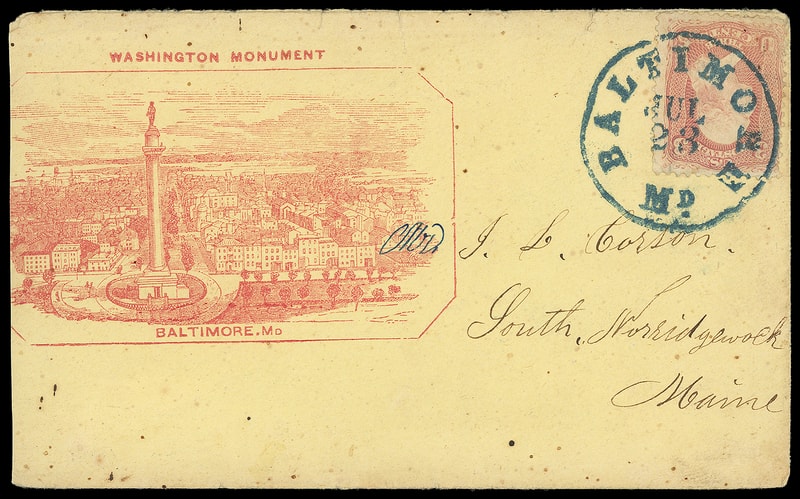 WASHINGTON MONUMENT
BALTIMORE. MD
BALTIMORE
JUL
23
MD.
J. L. Corson.
South, Norridgewock
Maine